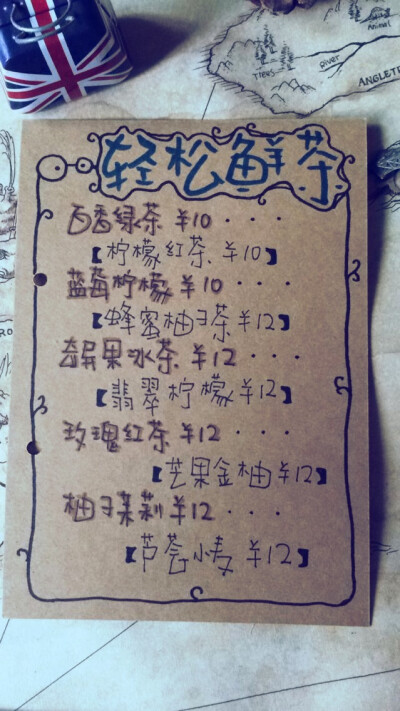 Animal
Trees
River
ANGLETE
轻松鲜茶
百香绿茶 ¥10 · · ·
【柠檬红茶 ¥10】
蓝莓柠檬 ¥10 · · ·
【蜂蜜柚子茶 ¥12】
奇异果冰茶 ¥12 · · ·
【翡翠柠檬 ¥12】
玫瑰红茶 ¥12 · · ·
【芒果金柚 ¥12】
柚子茉莉 ¥12 · · ·
【芦荟小麦 ¥12】